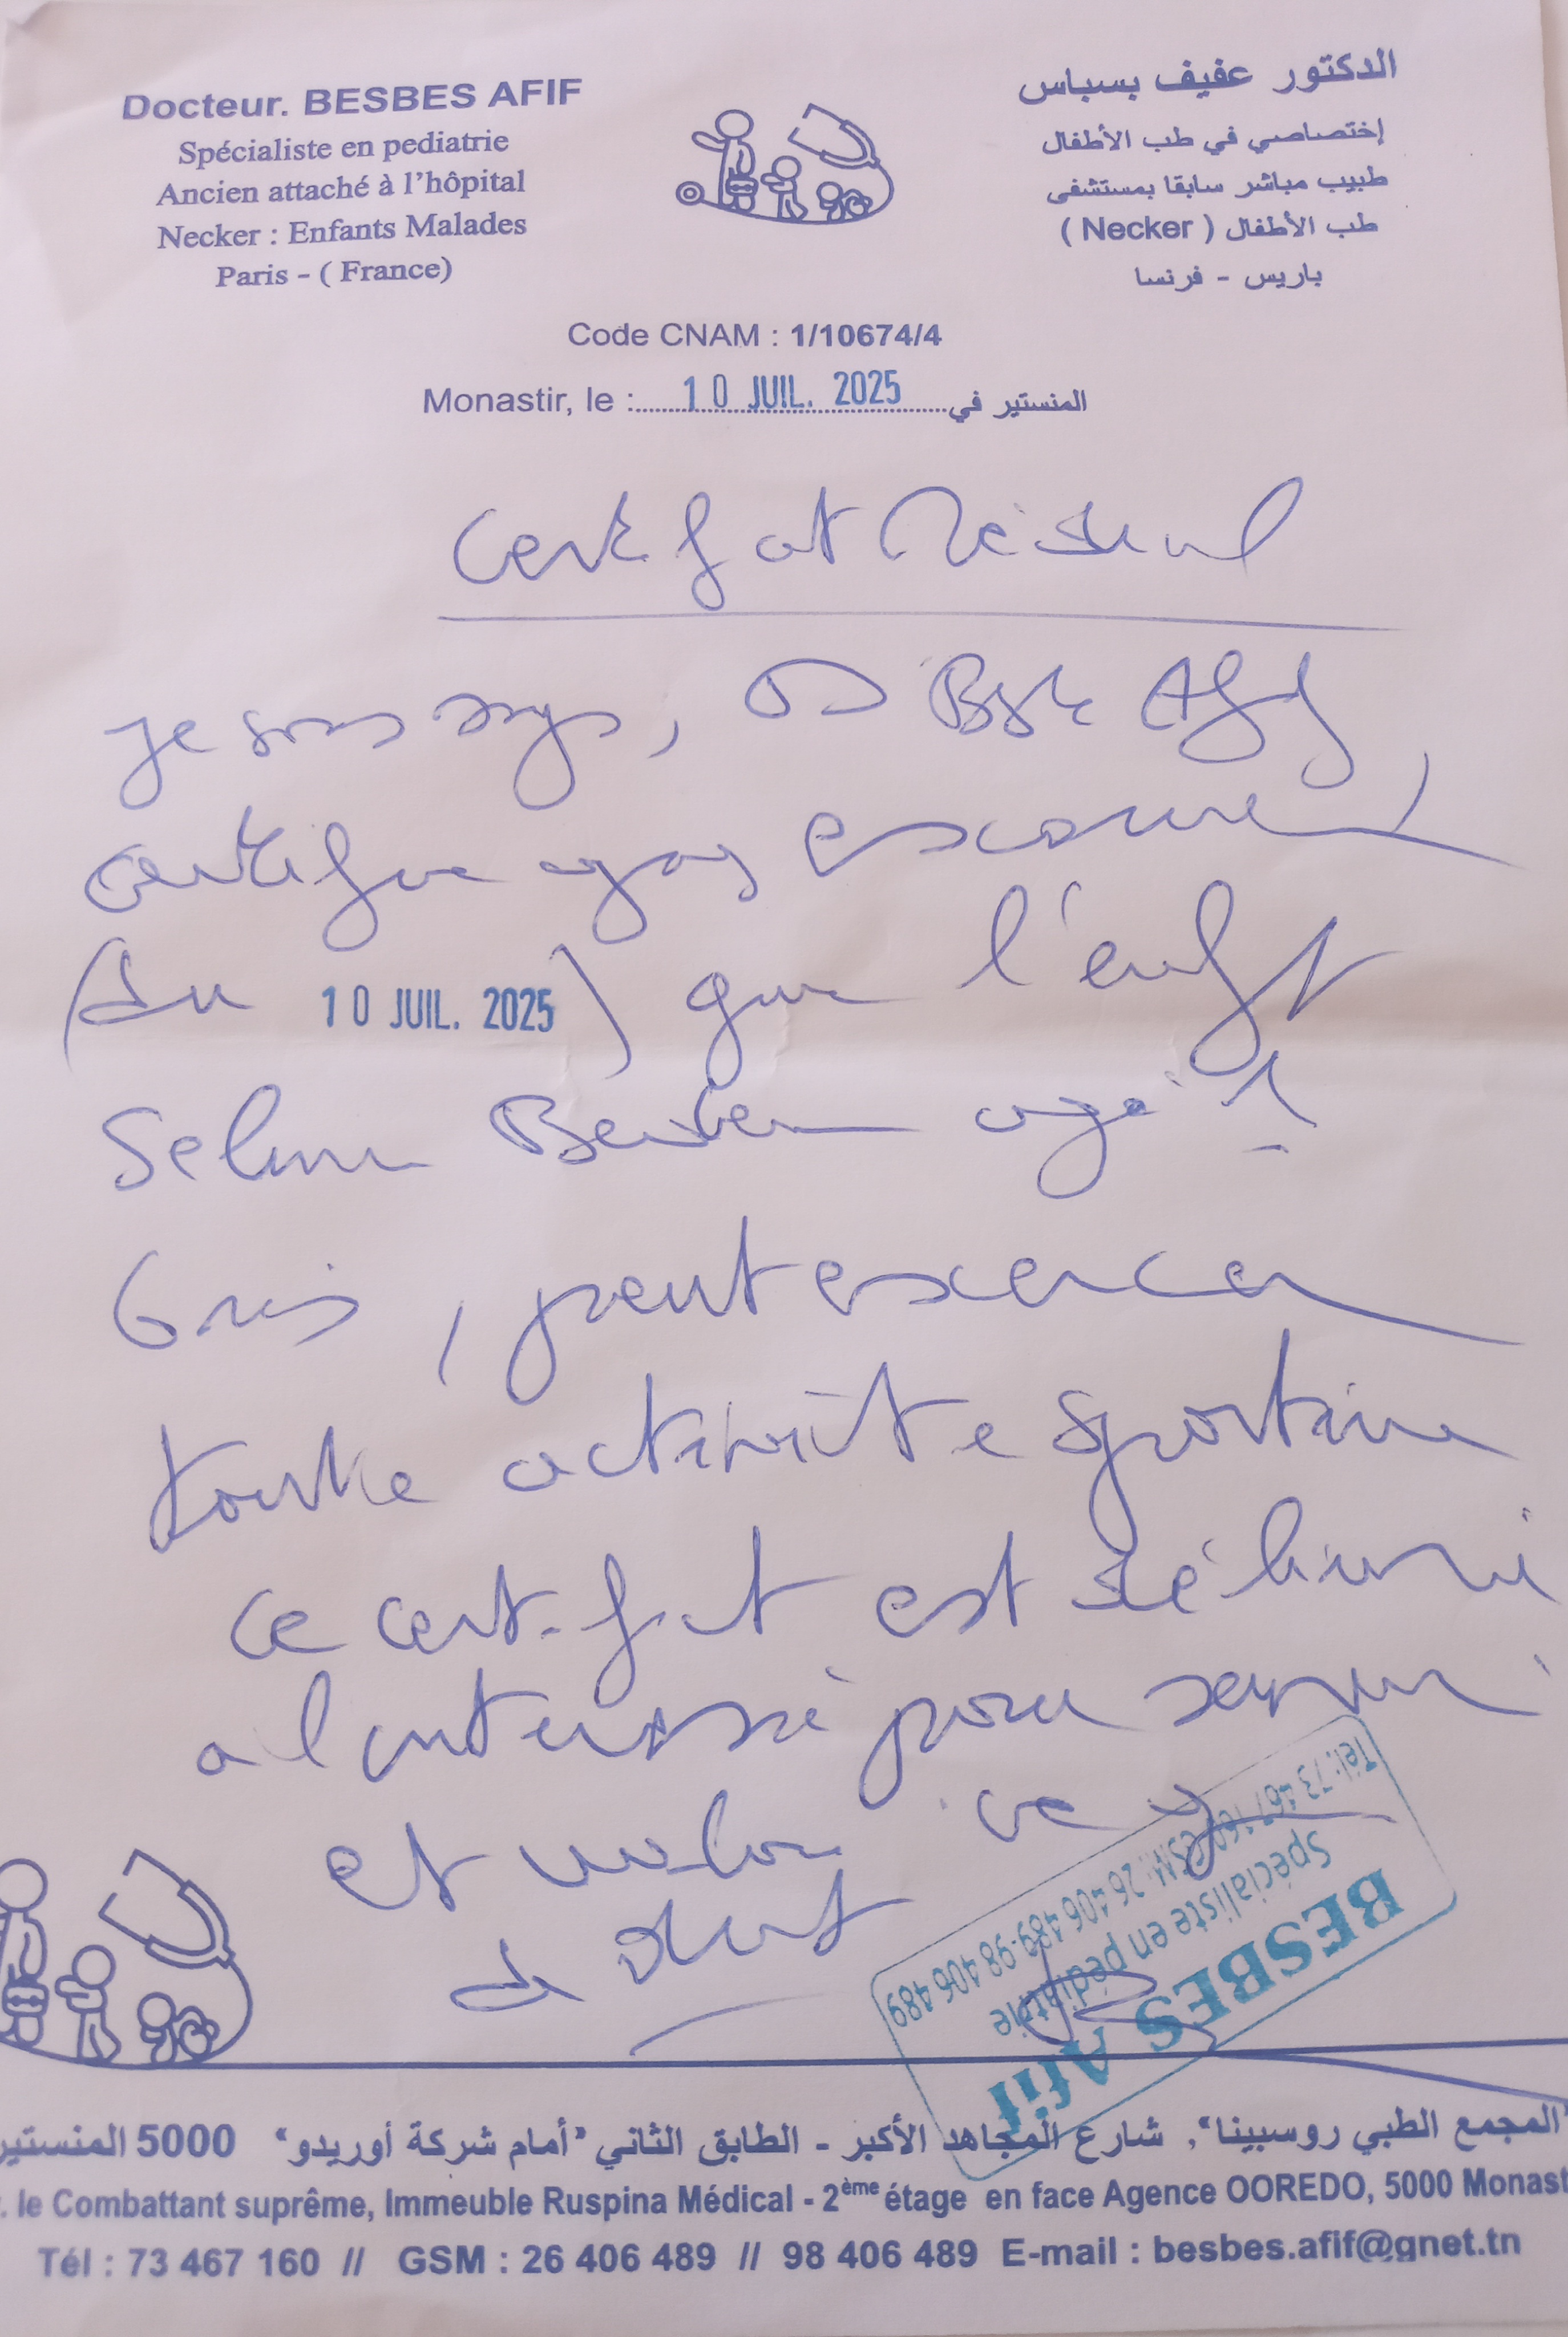 Docteur. BESBES AFIF
Spécialiste en pediatrie
Ancien attaché à l'hôpital
Necker : Enfants Malades
Paris - ( France)
الدكتور عفيف بسباس
إختصاصي في طب الأطفال
طبيب مباشر سابقا بمستشفى
طب الأطفال ( Necker )
باريس - فرنسا
Code CNAM : 1/10674/4
Monastir, le : 10 JUIL. 2025 المنستير في
Certificat Médical
Je soussigné, Dr Besbes Afif
certifie après examen
(du 10 JUIL. 2025) que l'enfant
Selim agé
6 ans, peut exercer
toute activité sportive
Ce certificat est délivré
a l'intéressé pour servir
et valoir ce que
de droit
BESBES Afif
Spécialiste en pédiatrie
Tél.: 73 467 160 GSM: 26 406 489-98 406 489
"المجمع الطبي روسبينا"، شارع المجاهد الأكبر - الطابق الثاني "أمام شركة أوريدو" 5000 المنستير
. le Combattant suprême, Immeuble Ruspina Médical - 2ème étage en face Agence OOREDO, 5000 Monast
Tél : 73 467 160 // GSM : 26 406 489 // 98 406 489 E-mail : besbes.afif@gnet.tn